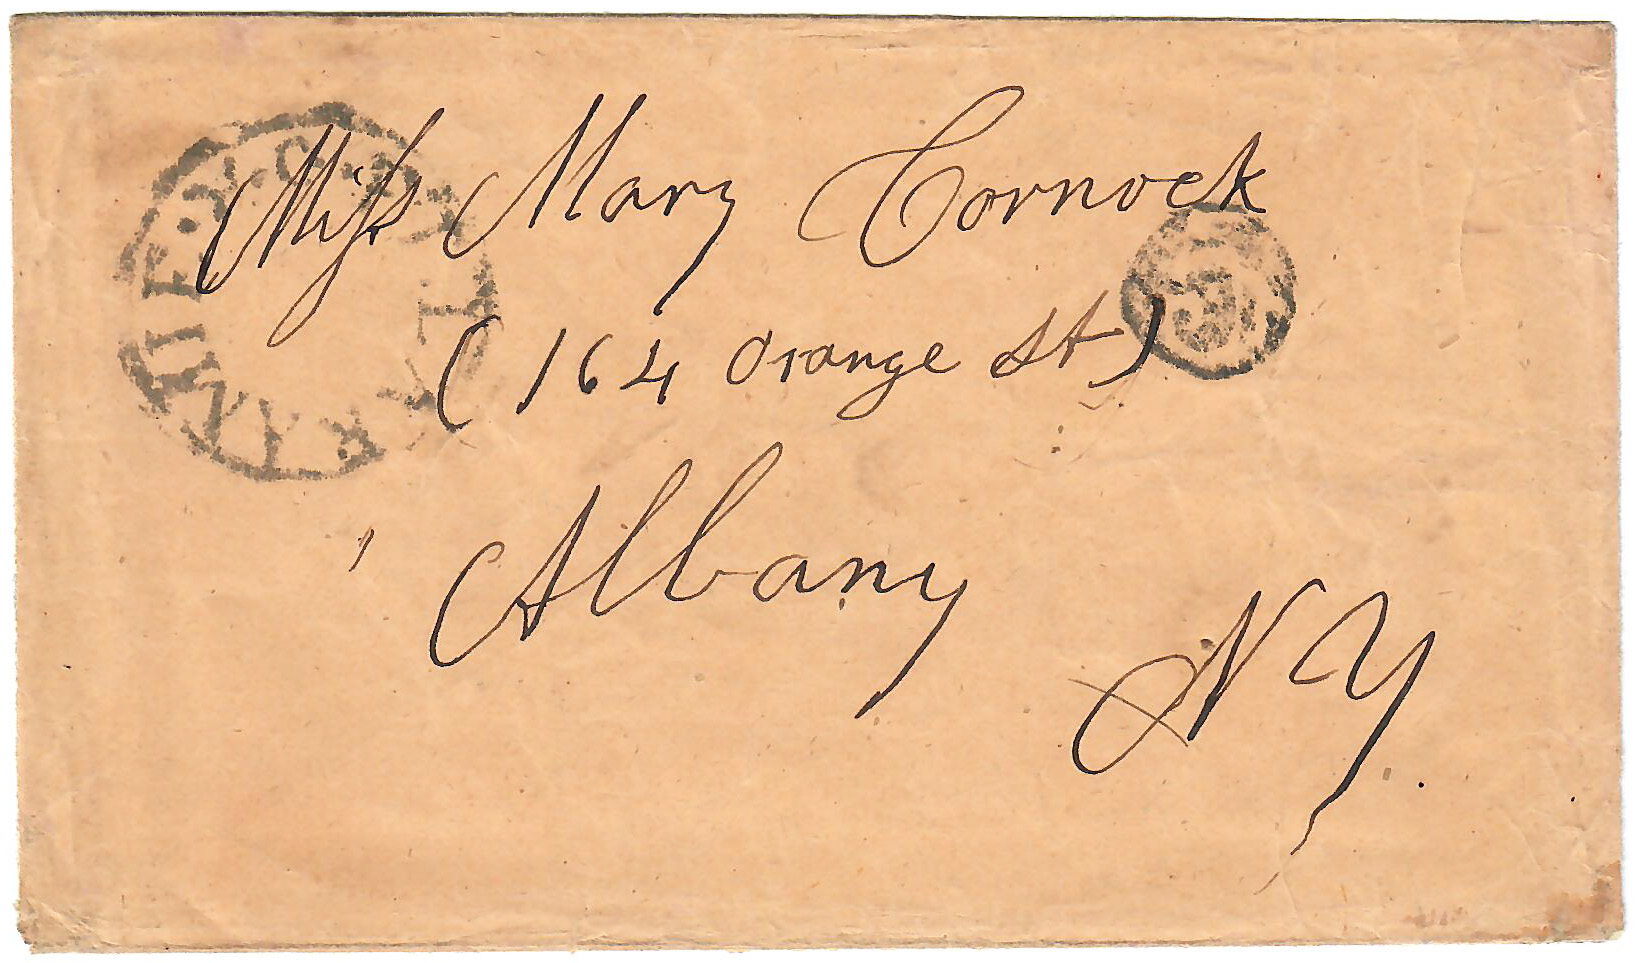 Miss Mary Cornock
(164 Orange St)
Albany
NY.